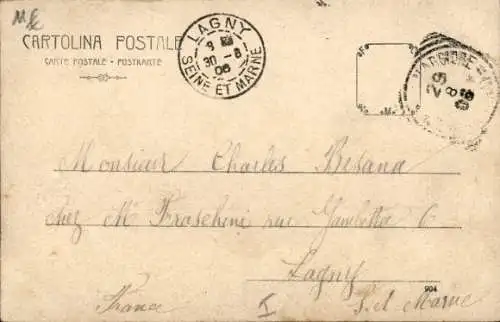 CARTOLINA POSTALE
CARTE POSTALE - POSTKARTE
LAGNY
30 - 8
06
SEINE ET MARNE
29
8
Monsieur Charles Besana
chez M Fraschini rue Gambetta 6
Lagny
904
France
S. et Marne